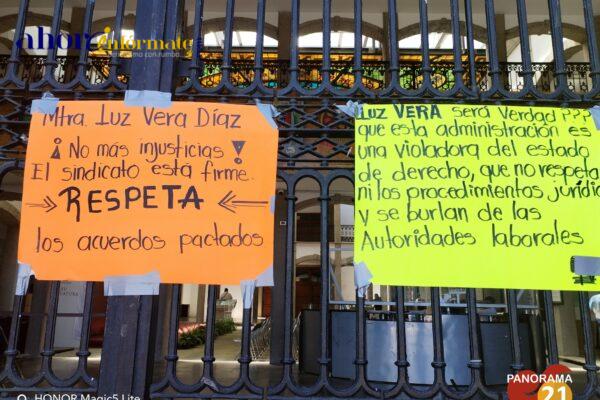 ahora informate
Mtra. Luz Vera Díaz
¡No más injusticias!
El sindicato está firme.
RESPETA
los acuerdos pactados
LUZ VERA será Verdad???
que esta administración es
una violadora del estado
de derecho, que no respeta
ni los procedimientos jurídic
y se burlan de las
Autoridades laborales
HONOR Magic5 Lite
PANORAMA
21